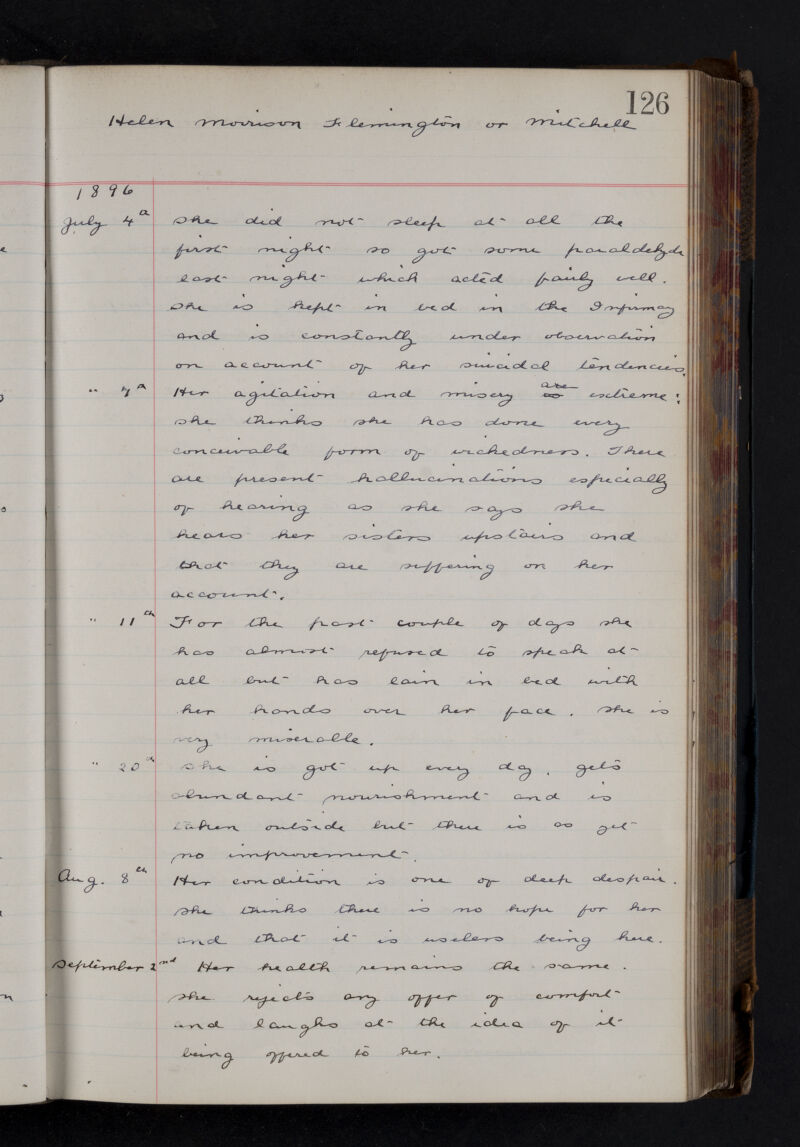 126
Helen Morrison Flemington or Mitchell
1896
July 4th She did not sleep at all the
first night so got some paraldehyde
last night which acted fairly well.
She is kept in bed in the Infirmary
and is constantly under observation
on account of her suicidal tendencies.
" 7th Her agitation and misery are extreme:
she thinks she has done every
conceivable form of wickedness. There
are present hallucinations especially
of hearing as she says she
hears her sisters upstairs and
that they are suffering on her
account.
" 11th For the past couple of days she
has almost refused to speak at
all but has lain in bed with
her hands over her face. She is
very miserable.
" 20th She is got up every day, gets
abundant nourishment and is
taken outside but there is as yet
no improvement.
Aug. 8th Her condition is one of deep despair.
She thinks there is no hope for her
and that it is useless being here.
September 2nd Her health remains the same.
She rejects any offer of comfort
and laughs at the idea of it
being offered to her.